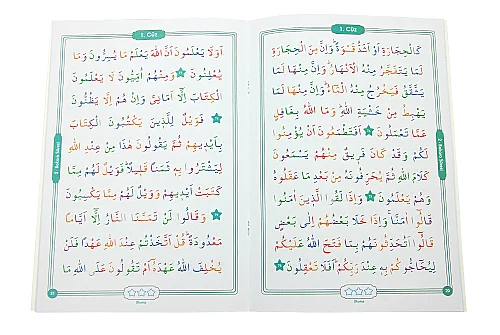 1. Cüz
كَالْحِجَارَةِ اَوْ اَشَدُّ قَسْوَةً وَاِنَّ مِنَ الْحِجَارَةِ
لَمَا يَتَفَجَّرُ مِنْهُ الْاَنْهَارُ وَاِنَّ مِنْهَا لَمَا
يَشَّقَّقُ فَيَخْرُجُ مِنْهُ الْمَاءُ وَاِنَّ مِنْهَا لَمَا
يَهْبِطُ مِنْ خَشْيَةِ اللهِ وَمَا اللهُ بِغَافِلٍ
عَمَّا تَعْمَلُونَ اَفَتَطْمَعُونَ اَنْ يُؤْمِنُوا
لَكُمْ وَقَدْ كَانَ فَرِيقٌ مِنْهُمْ يَسْمَعُونَ
كَلَامَ اللهِ ثُمَّ يُحَرِّفُونَهُ مِنْ بَعْدِ مَا عَقَلُوهُ
وَهُمْ يَعْلَمُونَ وَاِذَا لَقُوا الَّذِينَ اٰمَنُوا
قَالُوا اٰمَنَّا وَاِذَا خَلَا بَعْضُهُمْ اِلٰى بَعْضٍ
قَالُوا اَتُحَدِّثُونَهُمْ بِمَا فَتَحَ اللهُ عَلَيْكُمْ
لِيُحَاجُّوكُمْ بِهِ عِنْدَ رَبِّكُمْ اَفَلَا تَعْقِلُونَ
2 - Bakara Sûresi
Okuma
1. Cüz
اَوَلَا يَعْلَمُونَ اَنَّ اللهَ يَعْلَمُ مَا يُسِرُّونَ وَمَا
يُعْلِنُونَ وَمِنْهُمْ اُمِّيُّونَ لَا يَعْلَمُونَ
الْكِتَابَ اِلَّا اَمَانِيَّ وَاِنْ هُمْ اِلَّا يَظُنُّونَ
فَوَيْلٌ لِلَّذِينَ يَكْتُبُونَ الْكِتَابَ
بِاَيْدِيهِمْ ثُمَّ يَقُولُونَ هٰذَا مِنْ عِنْدِ اللهِ
لِيَشْتَرُوا بِهِ ثَمَنًا قَلِيلًا فَوَيْلٌ لَهُمْ مِمَّا
كَتَبَتْ اَيْدِيهِمْ وَوَيْلٌ لَهُمْ مِمَّا يَكْسِبُونَ
وَقَالُوا لَنْ تَمَسَّنَا النَّارُ اِلَّا اَيَّامًا
مَعْدُودَةً قُلْ اَتَّخَذْتُمْ عِنْدَ اللهِ عَهْدًا فَلَنْ
يُخْلِفَ اللهُ عَهْدَهُ اَمْ تَقُولُونَ عَلَى اللهِ مَا
2 - Bakara Sûresi
Okuma